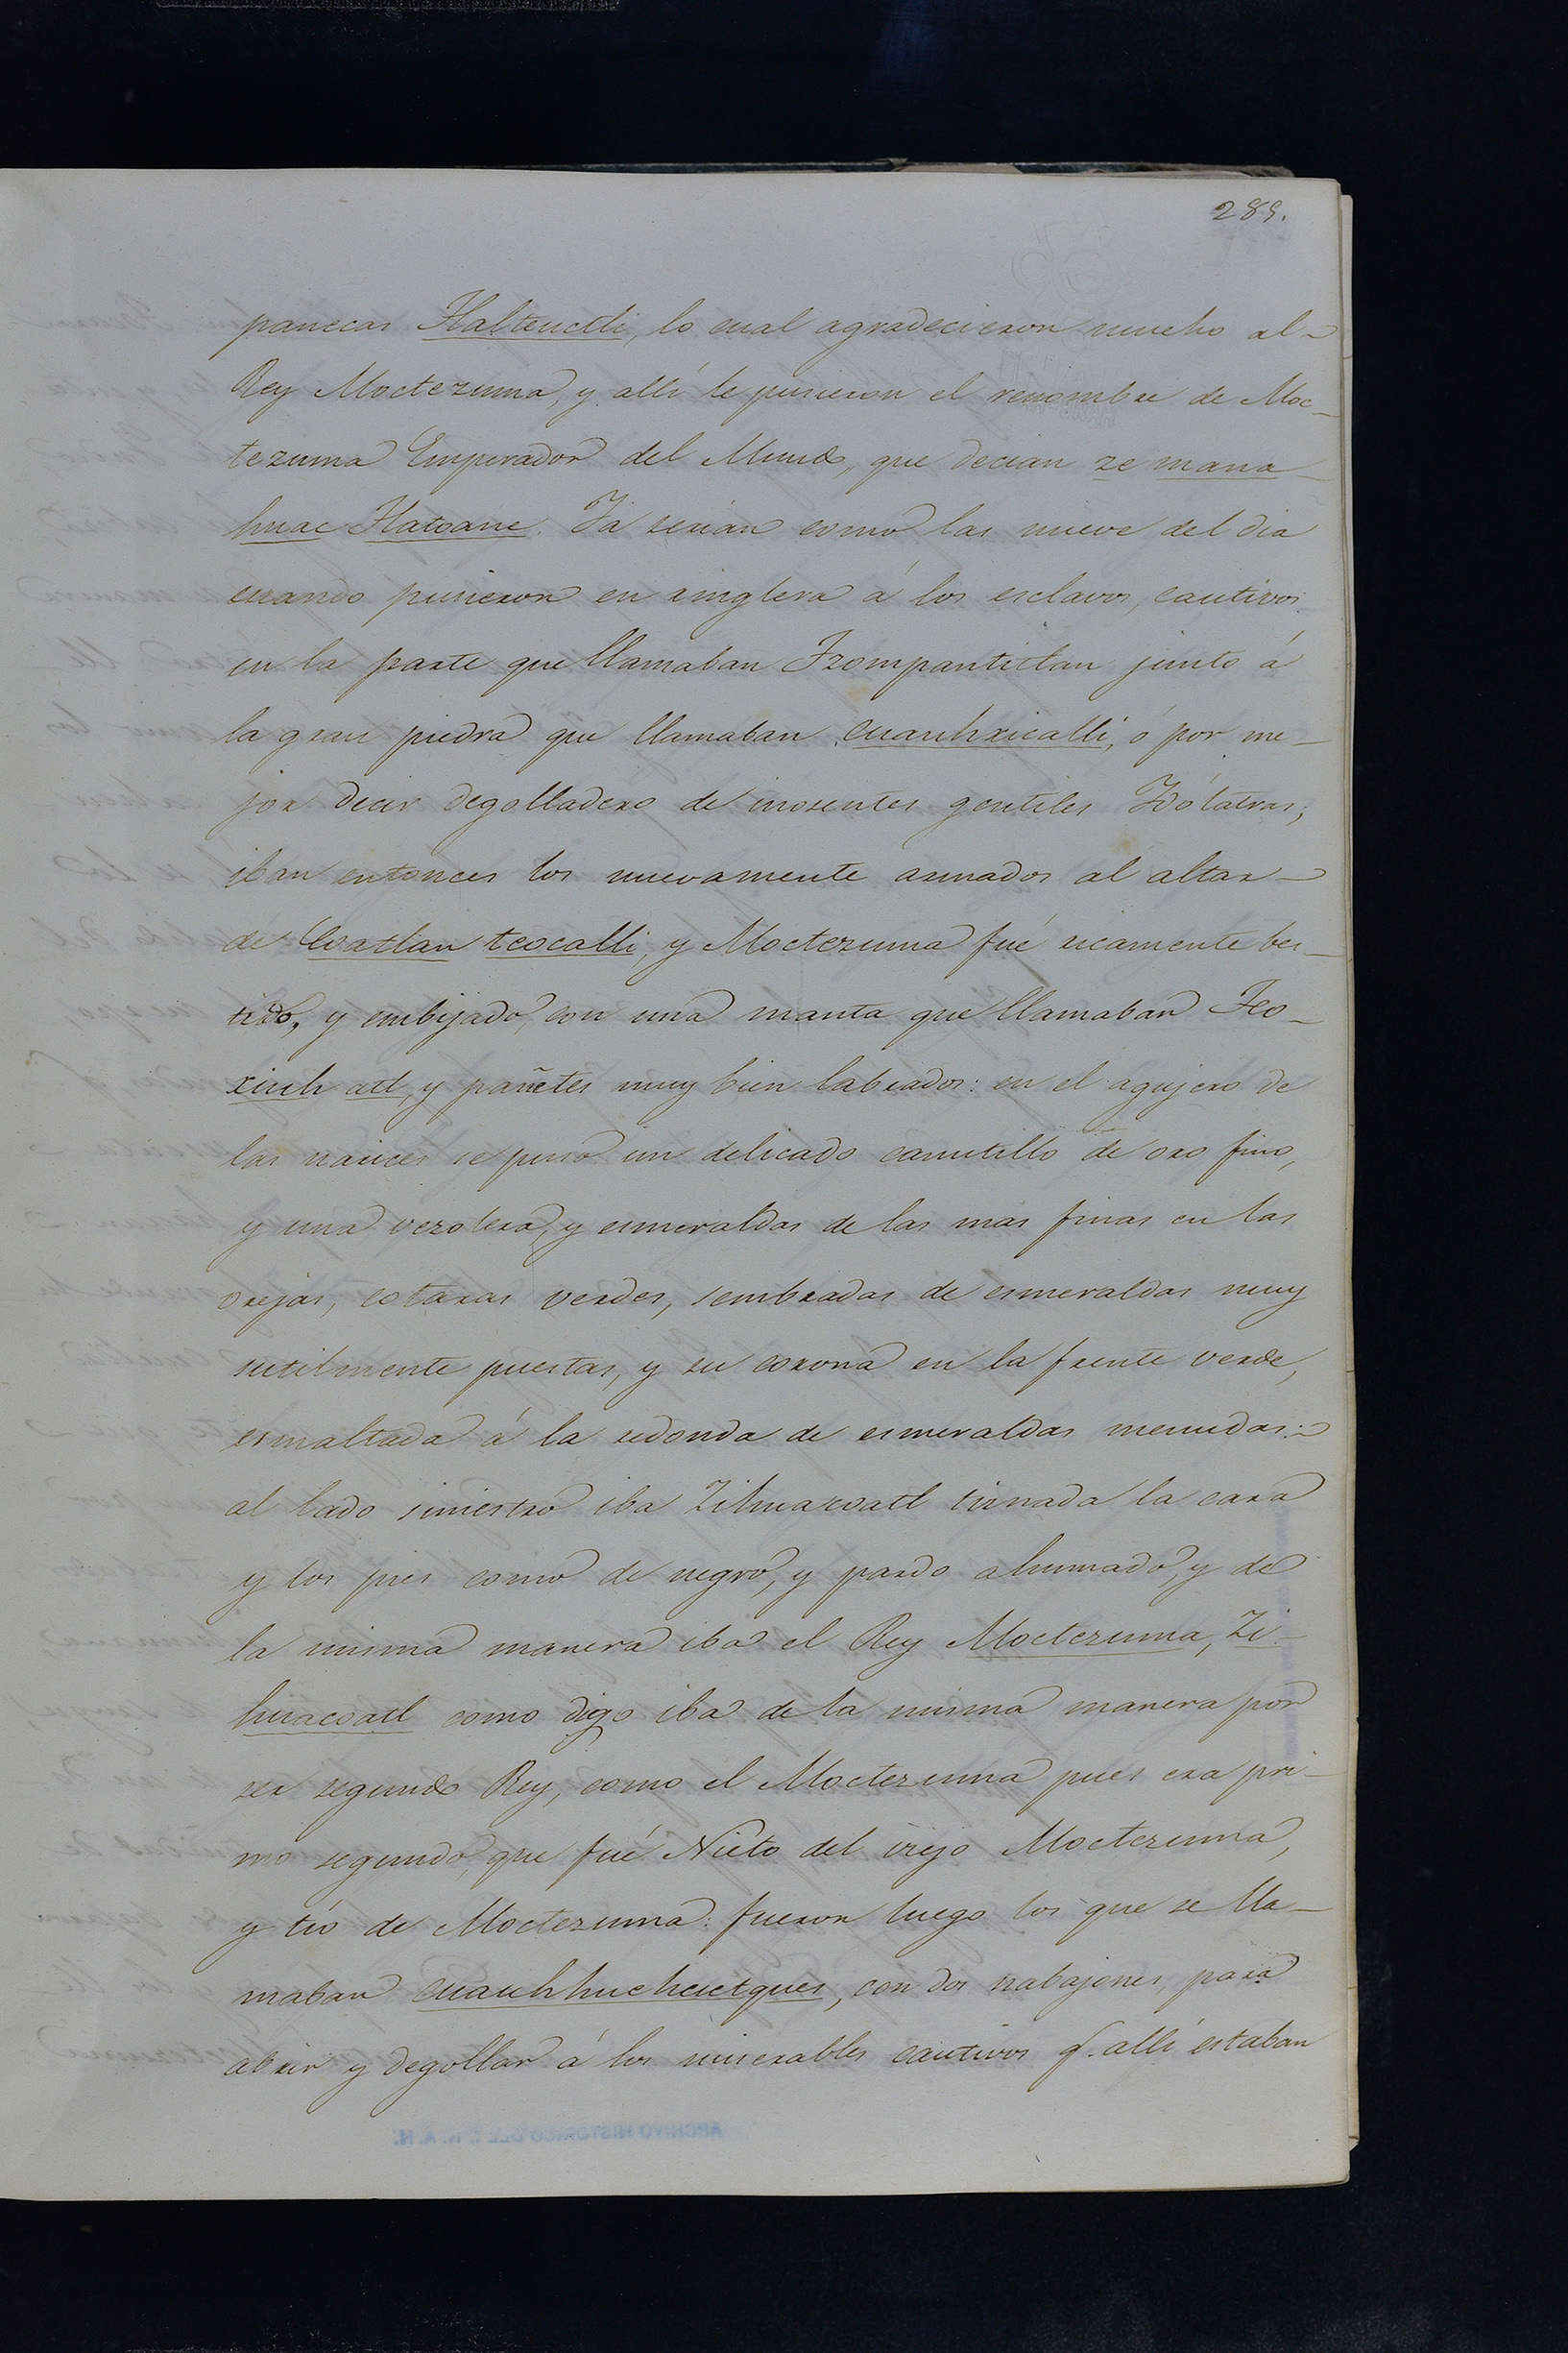 289.
panecas Tlaltenctli, lo cual agradecieron mucho al
Rey Moctezuma, y allí le pusieron el renombre de Moc-
tezuma Emperador del Mundo, que decian ze mana-
huac Tlatoane. Ya serian como las nueve del dia
cuando pusieron en ringlera á los esclavos, cautivos
en la parte que llamaban Tzompantitlan junto á
la gran piedra que llamaban cuauhxicalli, ó por me-
jor decir degolladero de inosentes gentiles Idólatras;
iban entonces los nuevamente armados al altar
de Coatlan teocalli, y Moctezuma fué ricamente bes-
tido, y embijado, con una manta que llamaban Teo-
xiuh atl, y pañetes muy bien labrados: en el agujero de
las narices se puso un delicado canutillo de oro fino,
y una vezolera, y esmeraldas de las mas finas en las
orejas, cotaras verdes, sembradas de esmeraldas muy
sutilmente puestas, y su corona en la frente verde,
esmaltada á la redonda de esmeraldas menudas:
al lado siniestro iba Zihuacoatl tiznada la cara
y los pies como de negro, y pardo ahumado, y de
la misma manera iba el Rey Moctezuma, Zi-
huacoatl como digo iba de la misma manera por
ser segundo Rey, como el Moctezuma pues era pri-
mo segundo, que fué Nieto del viejo Moctezuma,
y tio de Moctezuma: fueron luego los que se lla-
maban cuauhhuehuetques, con dos nabajones, para
abrir y degollar á los miserables cautivos q. allí estaban
ARCHIVO HISTORICO DEL I. N. A. H.